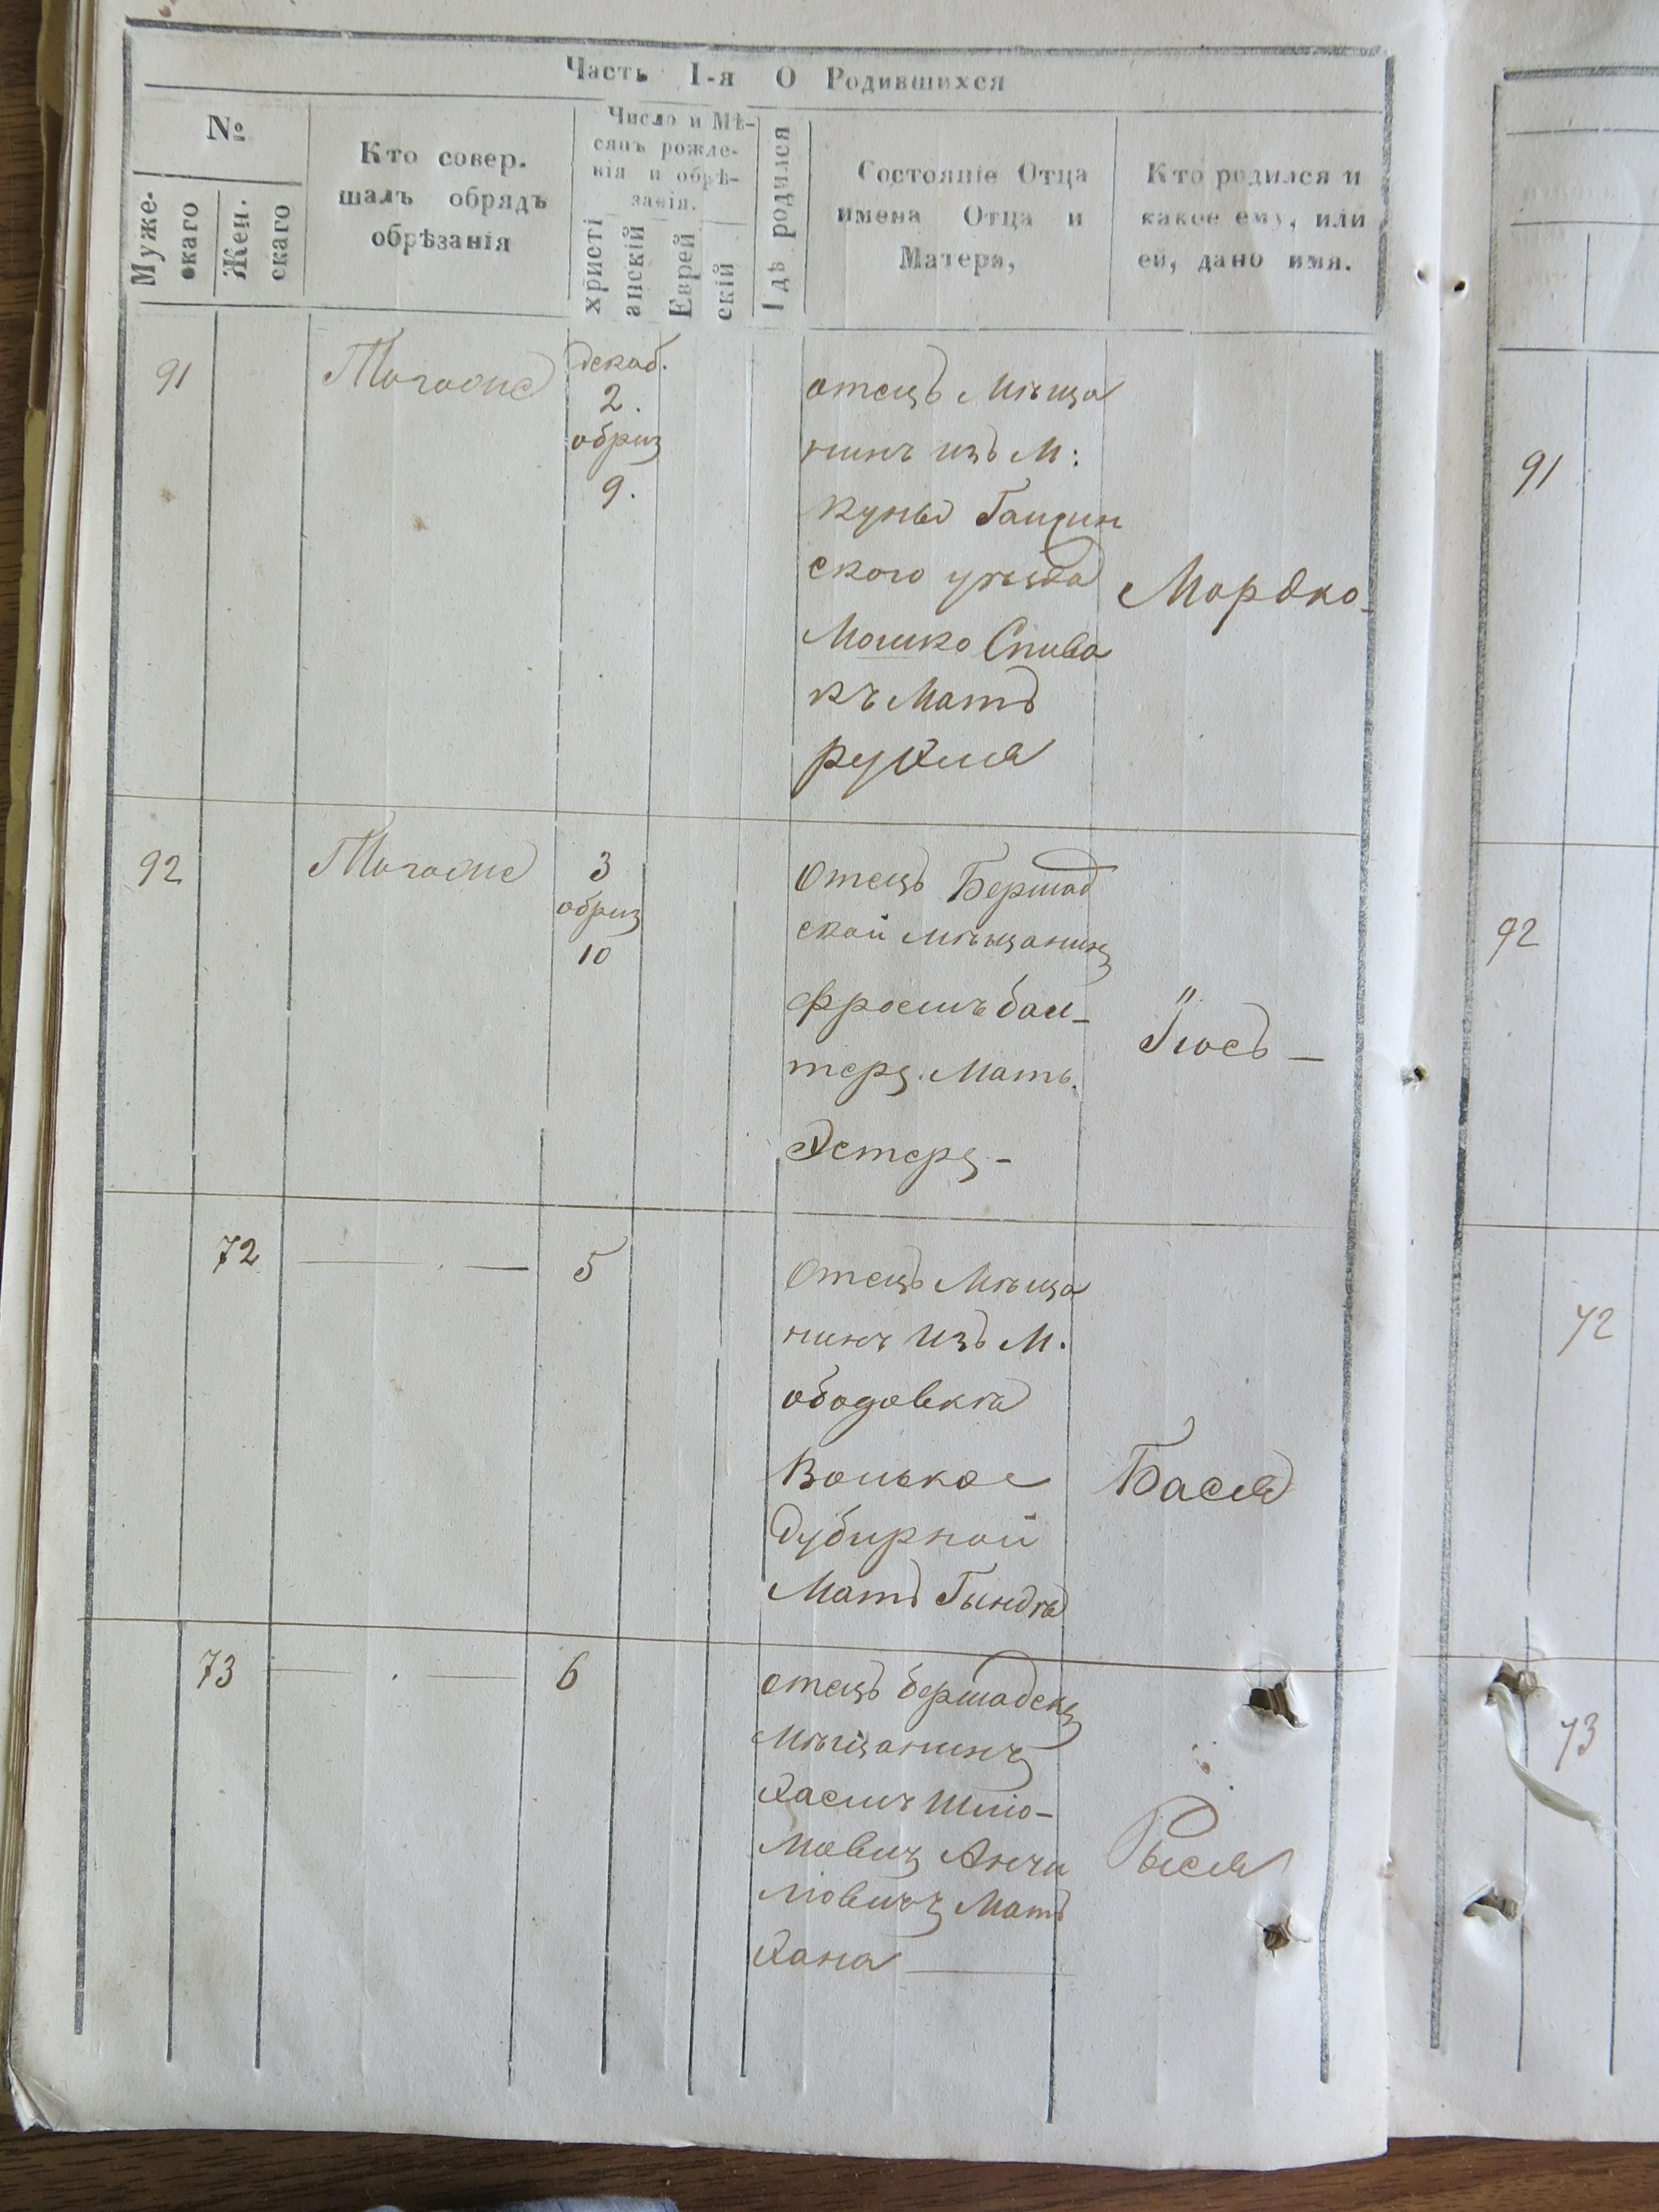 Часть I-я О Родившихся
№
Муже-
скаго
Жен.
скаго
Кто совер-
шалъ обрядъ
обрѣзанія
Число и Мѣ-
сяцъ рожде-
нія и обрѣ-
занія.
христі
анскій
Еврей
скій
Гдѣ родился
Состояніе Отца
имена Отца и
Матери,
Кто родился и
какое ему, или
ей, дано имя.
91
декаб.
2.
обриз
9.
отецъ Мѣща
нинъ изъ М:
Куны
ского уѣзда
Мошко Спива
къ Матъ
рухля
Мордко
91
92
3
обриз
10
Отецъ Бершад
ской мѣщанинъ
фроемъ
Мать.
Эстеръ -
Іюсъ -
92
72
5
Отецъ Мѣща
нинъ изъ М.
ободовка
Волько
дубирной
Матъ Гындя
Бася
72
73
6
отецъ бершадскъ
мѣщанинъ
Хаемъ Шлю-
мовичъ Анчи
ловичъ Матъ
Хана
Рыся
73